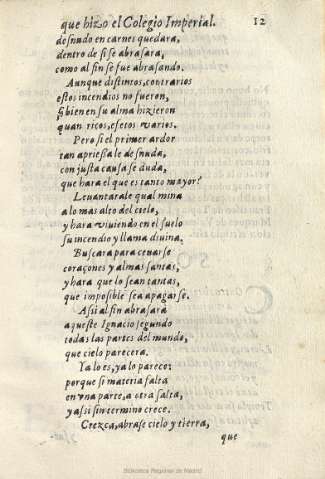 que hizo el Colegio Imperial. 12
desnudo en carnes quedara,
dentro de si se abrasara,
como al fin se fue abrasando.
Aunque distintos, contrarios
estos incendios no fueron,
si bien en su alma hizieron
quan ricos, efetos varios.
Pero si el primer ardor
tan apriessa le desnuda,
con justa causa se duda,
que hara el que es tanto mayor?
Levantarale qual mina
a lo mas alto del cielo,
y hara viviendo en el suelo
su incendio y llama divina.
Buscara para cevarse
coraçones y almas santas,
y hara que lo sean tantas,
que imposible sea apagarse.
Assi al fin abrasarà
aqueste Ignacio segundo
todas las partes del mundo,
que cielo parecera.
Ya lo es, ya lo parece:
porque si materia falta
en una parte, a otra salta,
y assi sin termino crece.
Crezca, abrase cielo y tierra,
que
Biblioteca Regional de Madrid